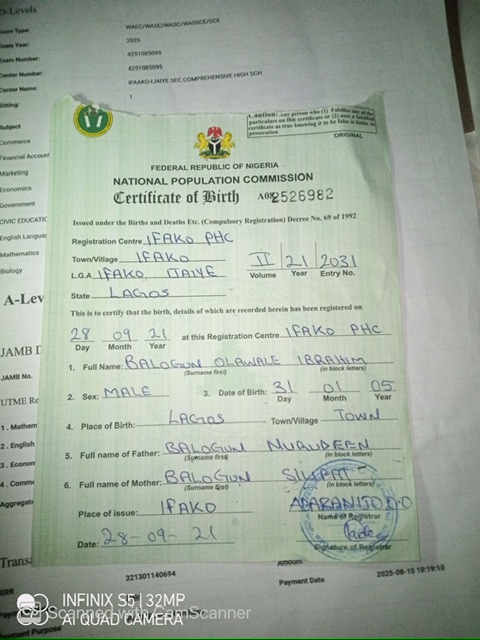 O-Levels
Exam Type:
WAEC/WASC/WASC/WASSCE/GCE
Exam Year:
2025
Exam Number:
4251085095
Center Number:
4251085095
Center Name:
IFAAKO-IJAIYE SEC COMPREHENSIVE HIGH SCH
Sitting:
1
Subject
Commerce
Financial Account
Marketing
Economics
Government
CIVIC EDUCATIO
English Languag
Mathematics
Biology
A-Lev
JAMB D
JAMB No.
UTME Re
1 . Mathem
2 . English
3 . Econom
4 . Comme
Aggregat
Transa
RRR
321301140694
Amount
Payment Date
2025-08-10 10:19:10
Caution: Any person who (1) Falsifies any of the
particulars on this certificate or (2) uses a falsified
certificate as true knowing it to be false is liable to
prosecution
ORIGINAL
FEDERAL REPUBLIC OF NIGERIA
NATIONAL POPULATION COMMISSION
Certificate of Birth
2526982
Issued under the Births and Deaths Etc. (Compulsory Registration) Decree No. 69 of 1992
Registration Centre IFAKO PHC
Town/Village IFAKO
II 21 2031
Volume Year Entry No.
L.G.A IFAKO IJAIYE
State LAGOS
This is to certify that the birth, details of which are recorded herein has been registered on
28 09 21 at this Registration Centre IFAKO PHC
Day Month Year
1. Full Name: BALOGUN OLAWALE IBRAHIM
(Surname first) (in block letters)
2. Sex: MALE 3. Date of Birth: 31 01 05
Day Month Year
4. Place of Birth: LAGOS Town/Village TOWN
5. Full name of Father: BALOGUN NURUDEEN
(Surname first) (in block letters)
6. Full name of Mother: BALOGUN
(Surname first) (in block letters)
Place of issue: IFAKO
Name of Registrar
Date: 28-09-21
Signature of Registrar
INFINIX S5 32MP
AI QUAD CAMERA
Scanned with CamScanner